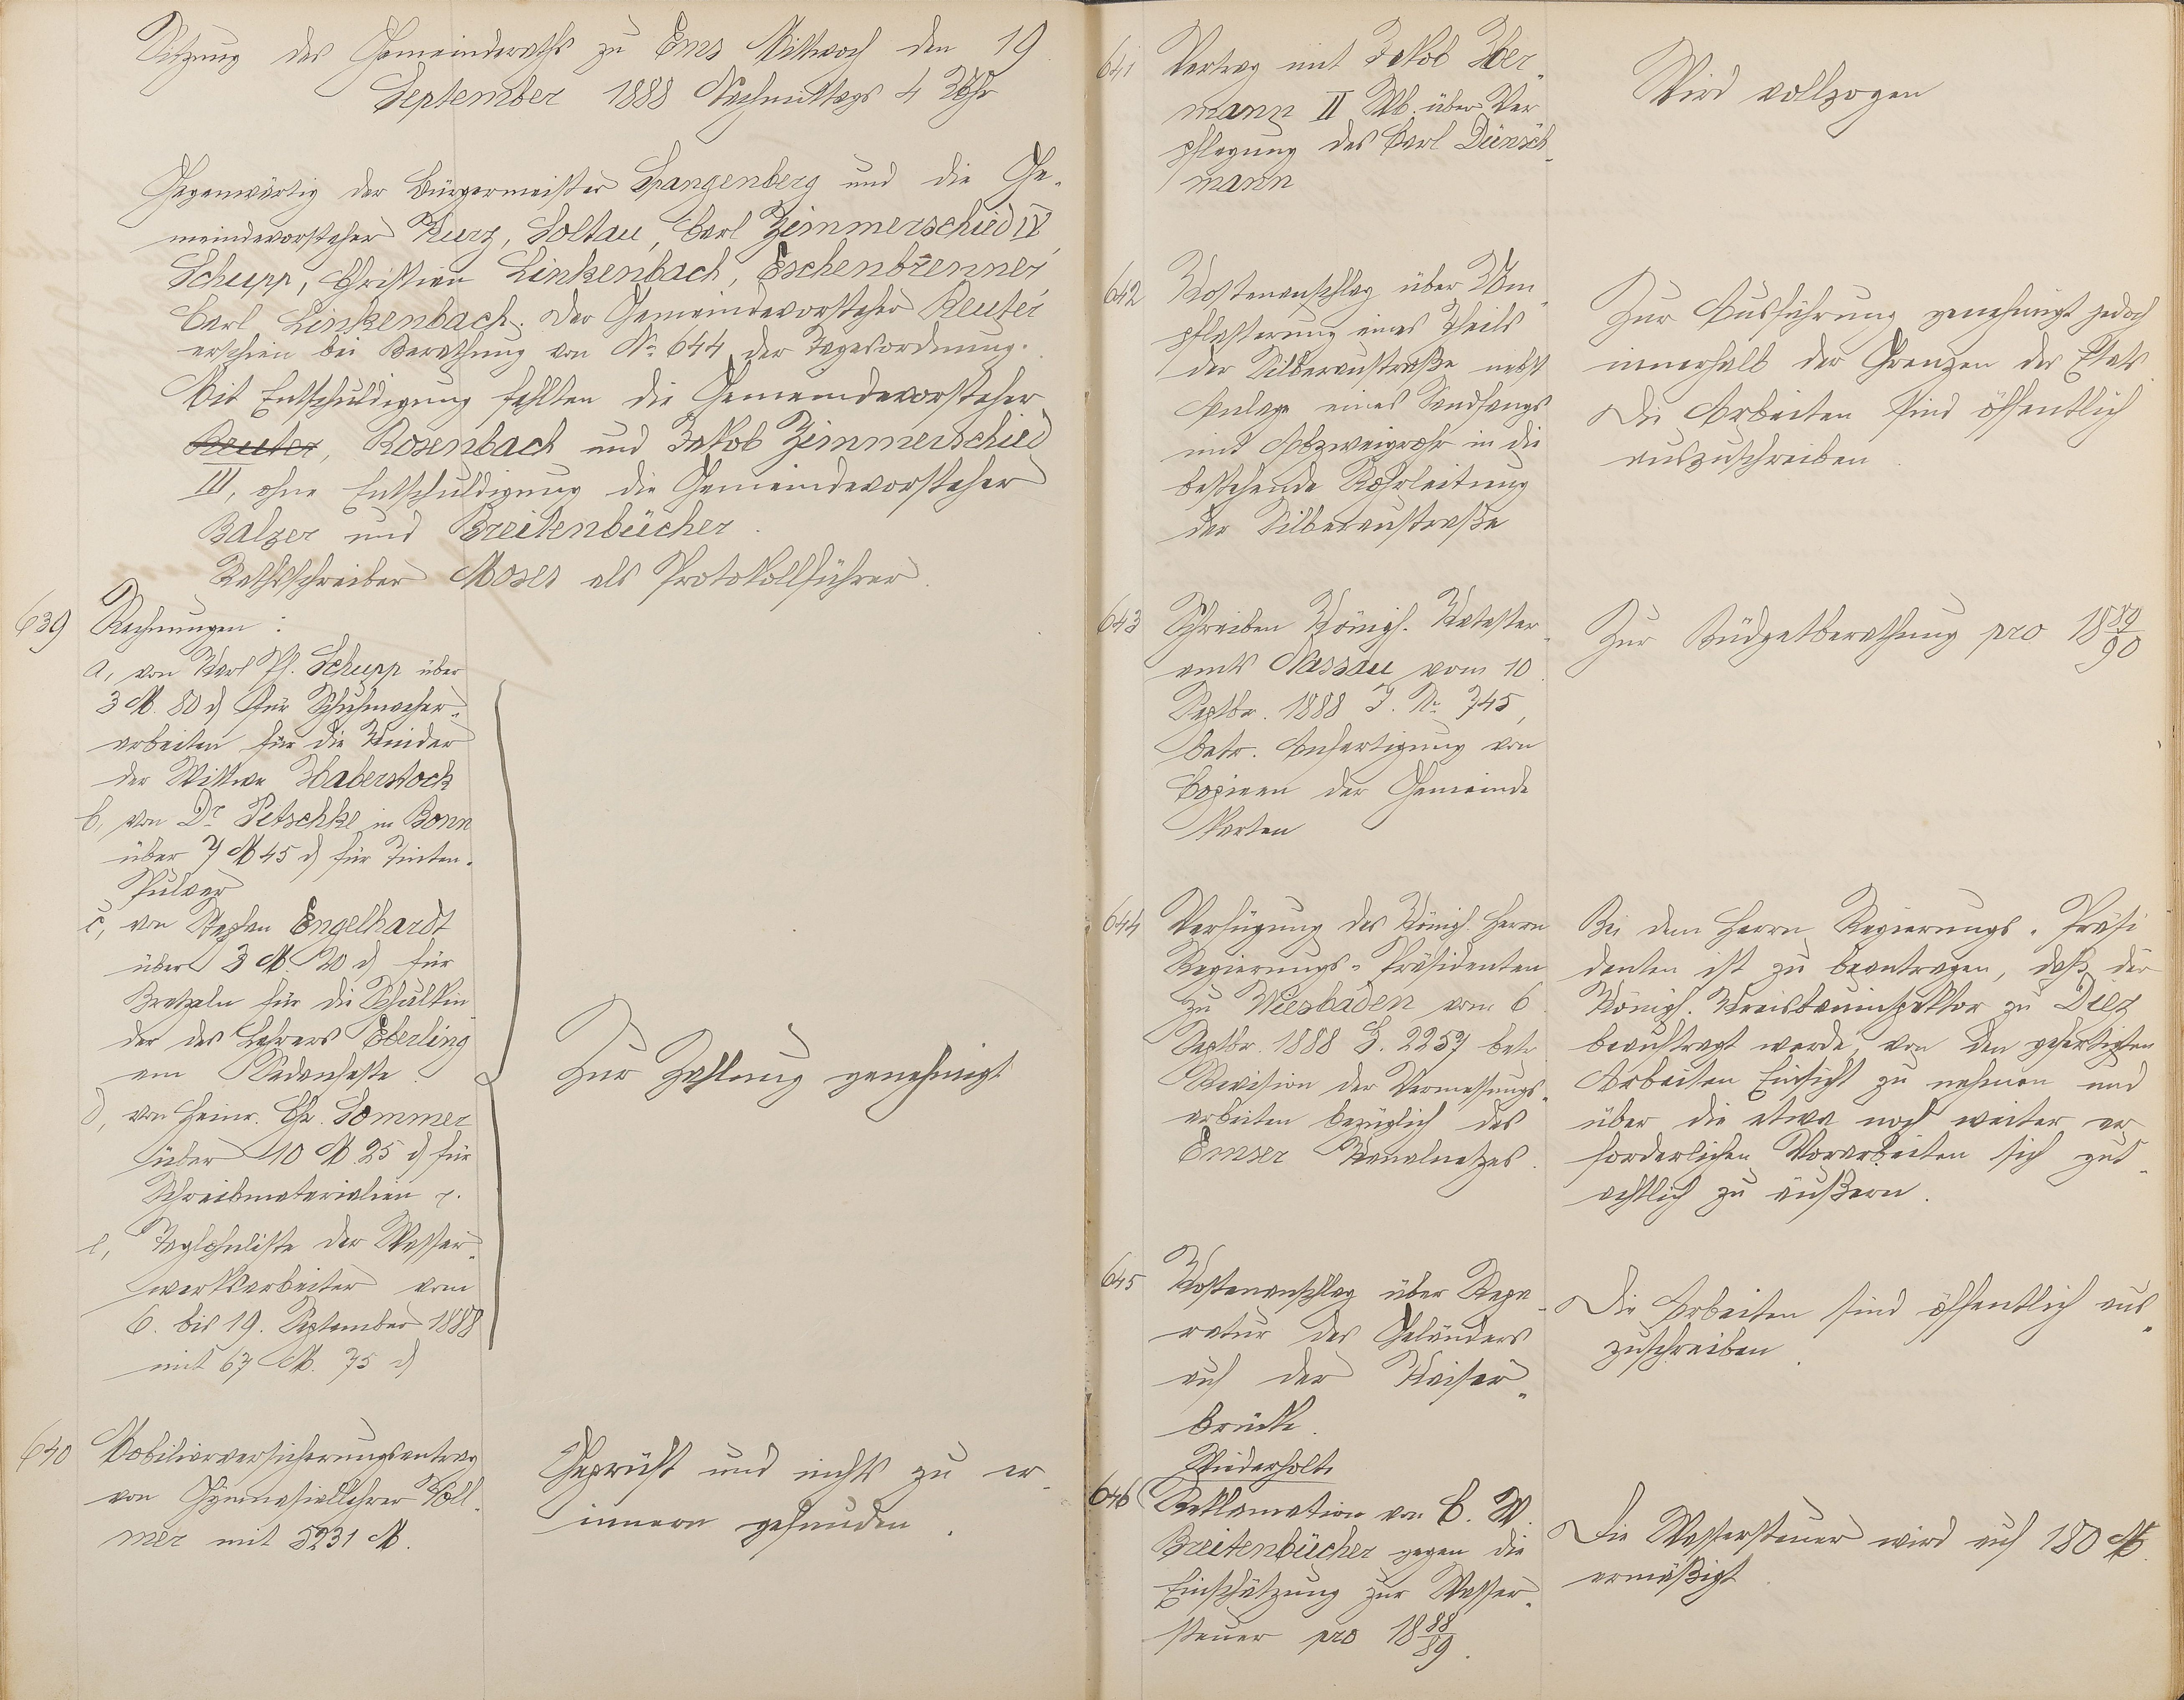 Sitzung des Gemeinderaths zu Ems Mittwoch den 19
September 1888 Nachmittags 4 Uhr
Gegenwärtig der Bürgermeister Spangenberg und die Ge-
meindevorsteher Kurz, Soltau, Carl Zimmerschied IV,
Schupp, Christian Linkenbach, Eschenbrenner,
Carl Linkenbach. Der Gemeindevorsteher Reuter
erschien bei Berathung von No. 644 der Tagesordnung.
Mit Entschuldigung fehlten die Gemeindevorsteher
Reuter, Rosenbach und Jakob Zimmerschied
III, ohne Entschuldigung die Gemeindevorsteher
Balzer und Breitenbücher.
Rathsschreiber Moses als Protokollführer.
639 Rechnungen:
a, von Karl Ph. Schupp über
3 M. 80 d für Schuhmacher-
arbeiten für die Kinder
der Wittwe Haberstock
b, von Dr. Petschke in Bonn
über 7 M 45 d für Tinten-
Pulver
c, von Stephan Engelhardt
über 3 M. 20 d für
Bretzeln für die Schulkin-
der des Lehrers Eberling
am Sedanfeste.
d, von Heinr. Chr. Sommer
über 10 M 25 d für
Schreibmaterialien p.
e, Taglohnliste der Wasser-
werksarbeiter vom
6. bis 19. September 1888
mit 67 M. 75 d
Zur Zahlung genehmigt
640 Mobiliarversicherungsantrag
von Gymnasiallehrer Voll-
mer mit 5231 M.
Geprüft und nichts zu er-
innern gefunden.
641 Vertrag mit Jakob Her-
mann II Wb. über Ver-
pflegung des Carl Dünsch-
mann
Wird vollzogen
642 Kostenanschlag über Um-
pflasterung eines Theils
der Silberaustraße nebst
Anlage eines Sandfangs
mit Abzweigrohr in die
bestehende Rohrleitung
der Silberaustraße
Zur Ausführung genehmigt jedoch
innerhalb der Grenzen des Etats.
Die Arbeiten sind öffentlich
auszuschreiben.
643 Schreiben Königl. Kataster-
amts Nassau vom 10.
Septbr. 1888 J. No. 745,
betr. Anfertigung von
Copieen der Gemeinde
Karten
Zur Büdgetberathung pro 1889/90
644 Verfügung des Königl. Herrn
Regierungs-Präsidenten
zu Wiesbaden vom 6.
Septbr. 1888 G. 2257 betr.
Revision der Vermessungs-
arbeiten bezüglich des
Emser Kanalnetzes.
Bei dem Herrn Regierungs-Präsi
denten ist zu beantragen, daß der
Königl. Kreisbauinspektor zu Diez
beauftragt werde, von den gefertigten
Arbeiten Einsicht zu nehmen und
über die etwa noch weiter er-
forderlichen Vorarbeiten sich gut-
achtlich zu äußern.
645 Kostenanschlag über Repa-
ratur des Geländers
auf der Kaiser-
brücke.
Die Arbeiten sind öffentlich aus-
zuschreiben.
Wiederholte
646 Reklamation von C. W.
Breitenbücher gegen die
Einschätzung zur Wasser-
steuer pro 1888/89.
Die Wassersteuer wird auf 180 M.
ermäßigt.